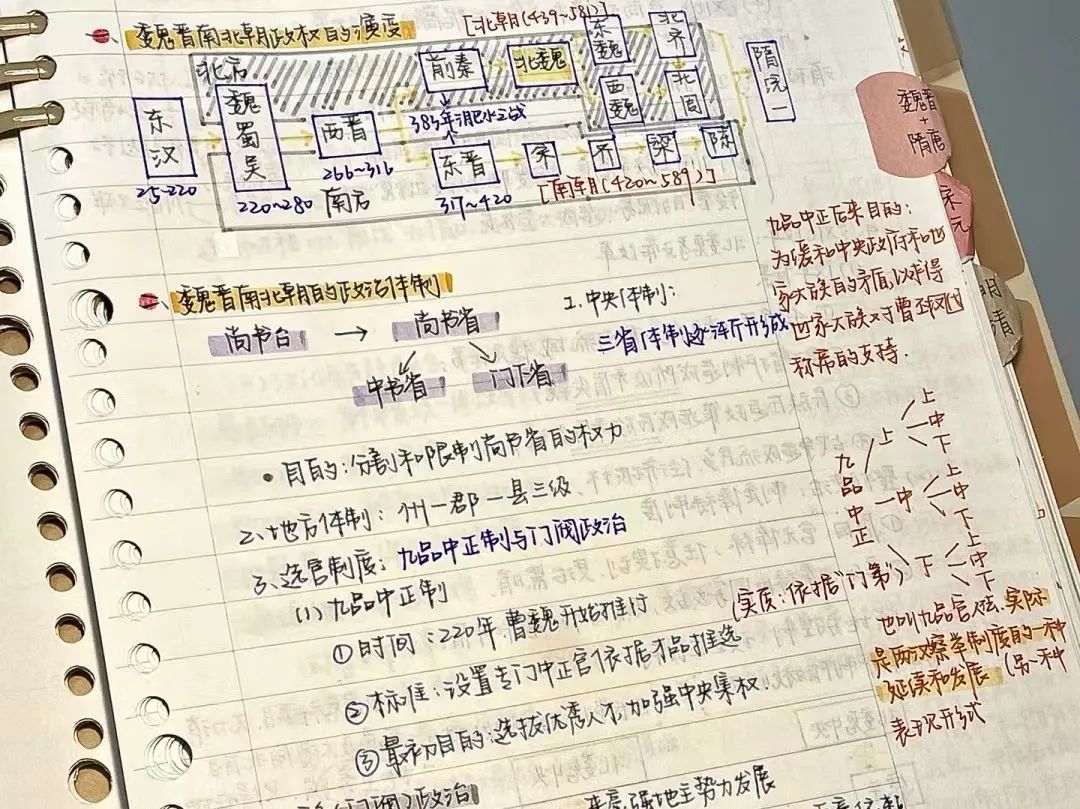 魏晋南北朝政权的演变
[北朝(439~581)]
北方
前秦
北魏
东魏
北齐
西魏
北周
隋统一
东汉
25-220
魏蜀吴
220~280
西晋
266~316
383年淝水之战
东晋
317~420
宋
齐
梁
陈
南方
[南朝(420~589)]
魏晋+隋唐
宋元
明清
魏晋南北朝的政治体制
尚书台 → 尚书省
中书省 门下省
1.中央体制:
三省体制逐渐形成
• 目的:分割和限制尚书省的权力
2.地方体制: 州一郡一县三级
3.选官制度: 九品中正制与门阀政治
(1)九品中正制
①时间:220年曹魏开始推行
②标准:设置专门中正官依据才品推选
③最初目的:选拔优秀人才,加强中央集权.
九品中正后来目的:
为缓和中央政府和世
家大族的矛盾,以求得
世家大族对于曹丕取代
称帝的支持.
九品中正
上 上 中 下
中 上 中 下
下 上 中 下
(实质:依据"门第")
也叫九品官人法.实际
是两汉察举制度的一种
延续和发展 (另一种
表现形式
(门阀)政治
豪强地主势力发展